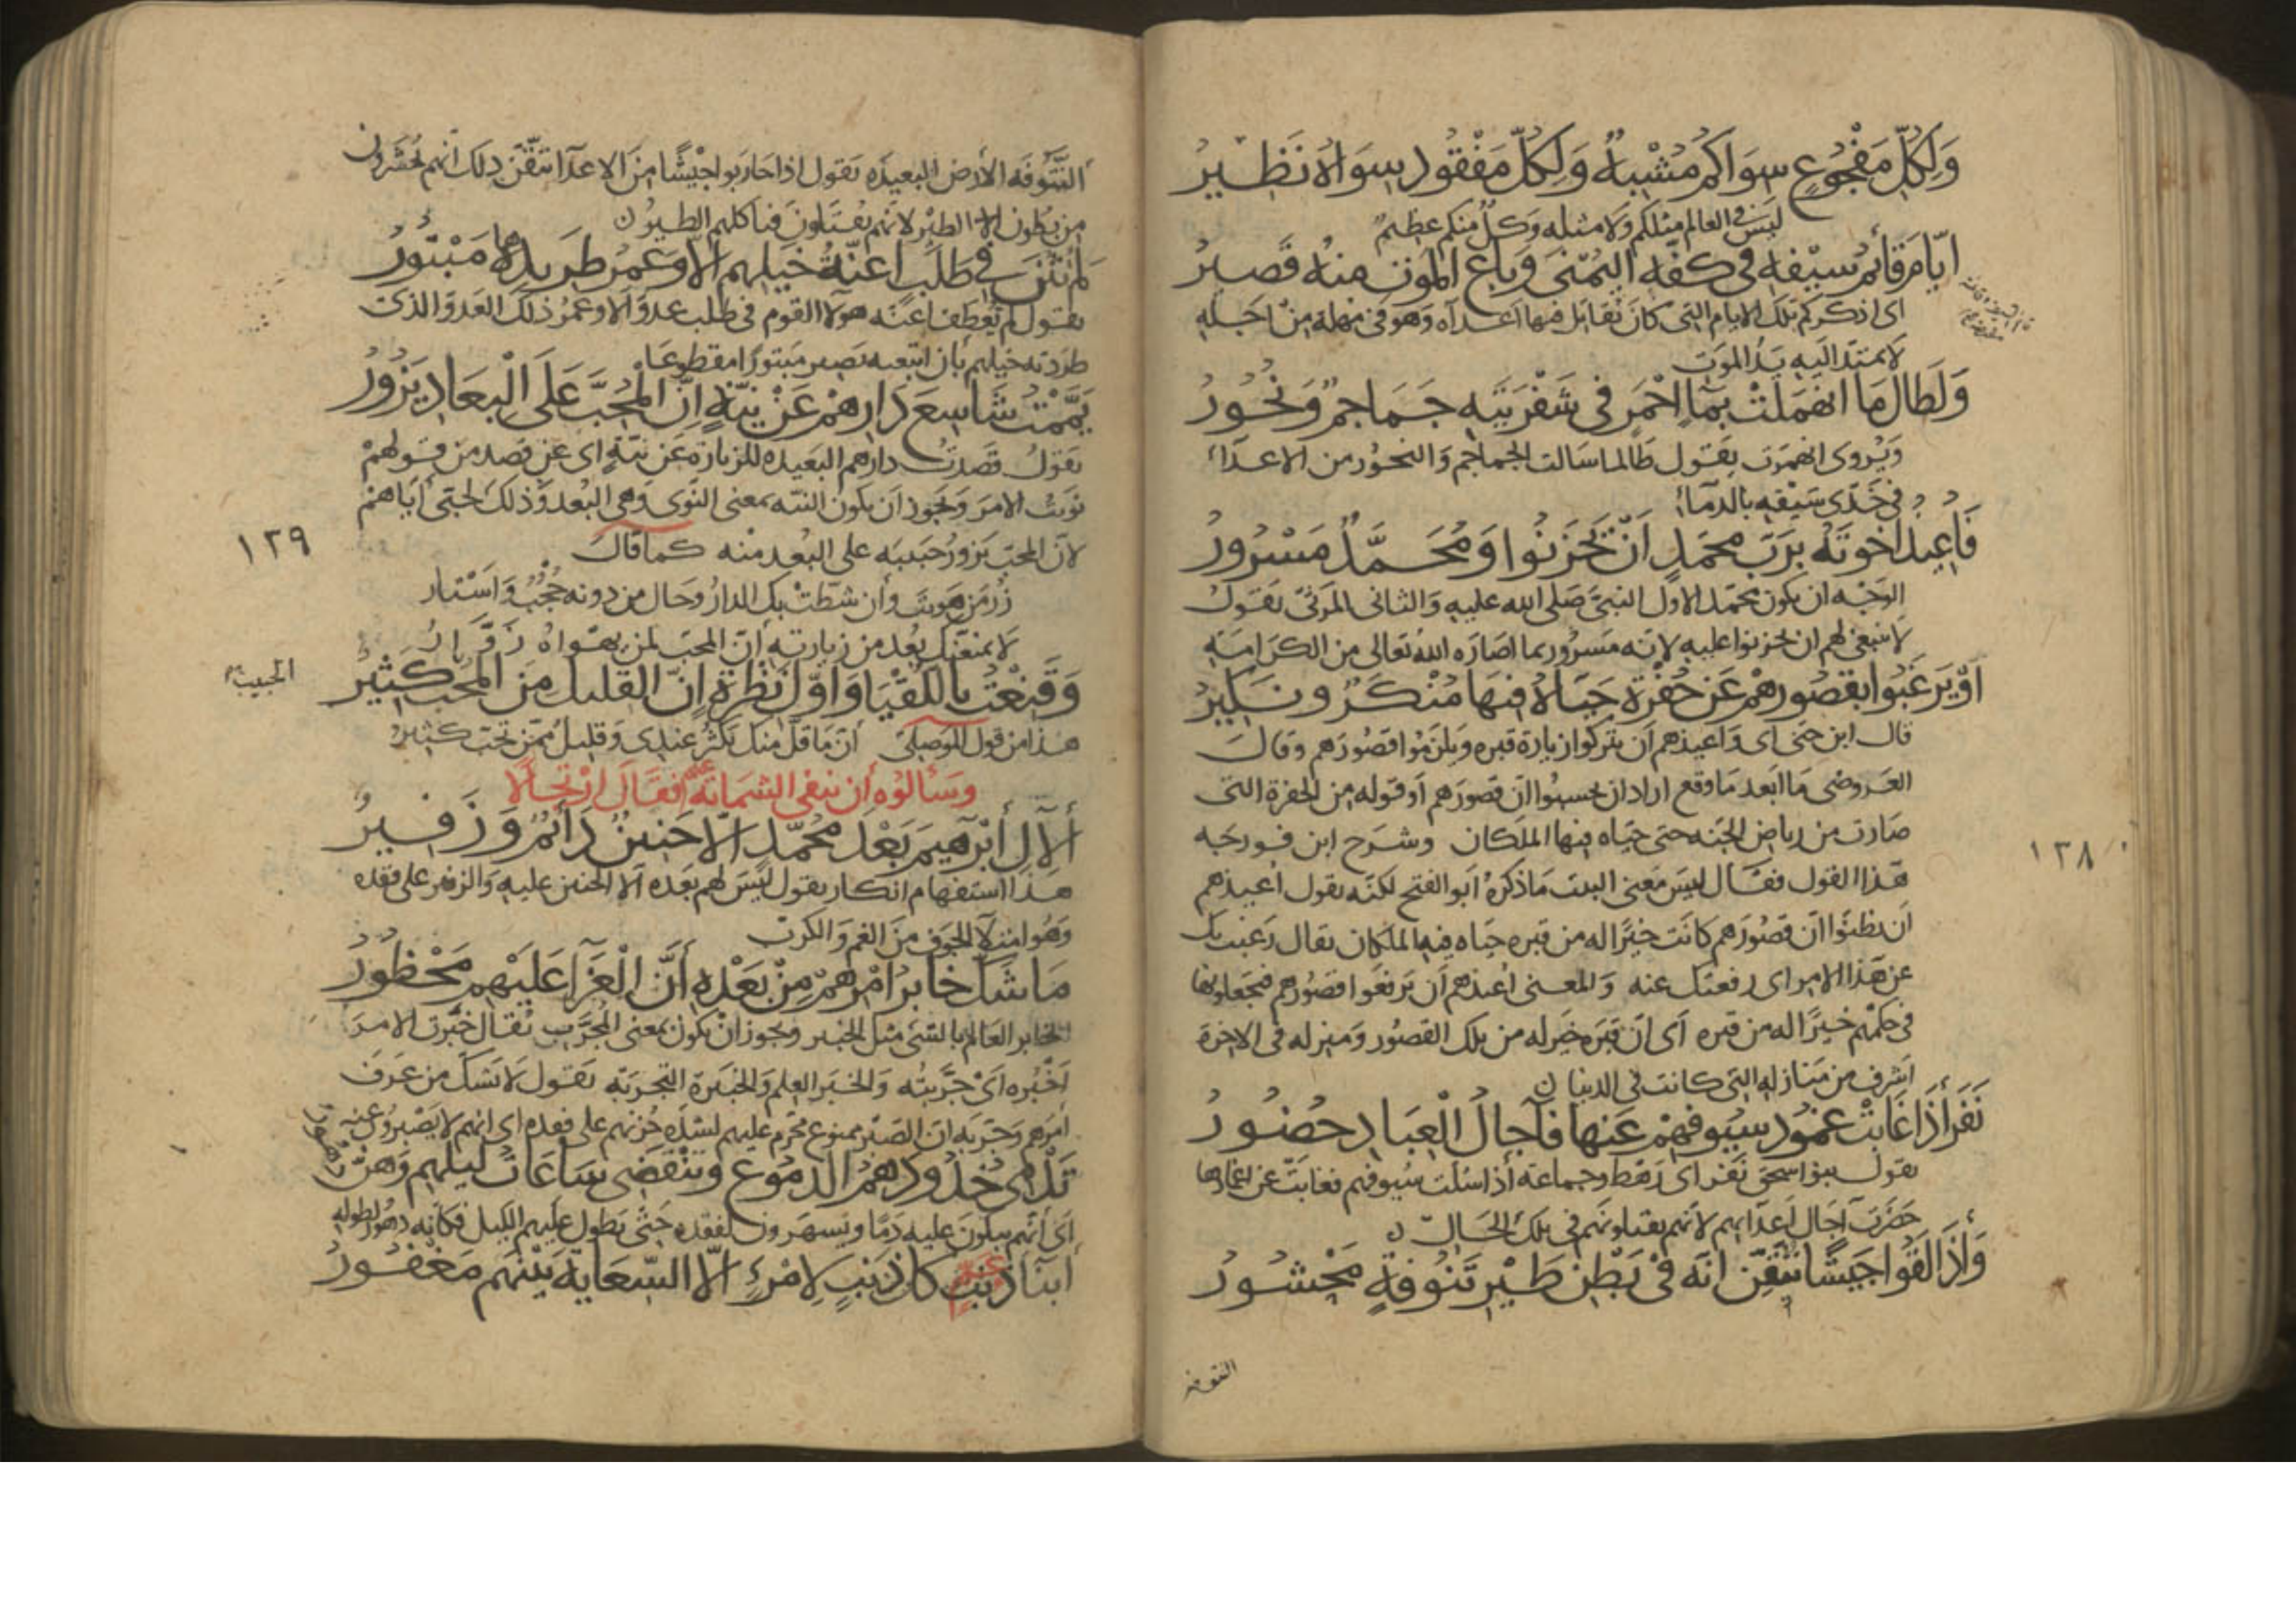 وَلِكُلّ مَفْجُوعٍ سِوَاكُم مُشْبِهٌ وَلِكُلّ مَفْقُودٍ سِوَاهُ نَظِيرُ
ليس في العالم مثلكم ولا مثله وكلّ منكم عظيم
ايّامَ قائِمُ سيْفهِ في كفّهِ اليُمْنَى وَباعُ المَوْتِ مِنهُ قَصيرُ
اى اذكركم تلك الايام التى كان يقاتل فيها اعداه وهو فى مهلة من اجله
لا يمتدّ اليه يد الموت
وَلَطَالَ مَا انهَمَلَتْ بمَاءٍ احْمَرٍ في شَفْرَتَيْهِ جَمَاجِمٌ وَنُحُورُ
ويُروى انهمرت يقول طالما سالت الجماجم والنحور من الاعداء
فى حدّى سيفه بالدماء
فَأُعِيذُ اخوَتَهُ برَبّ محمّدٍ أنْ يَحْزَنُوا وَمُحَمّدٌ مَسْرُورُ
الوجه ان يكون محمّد الاول النبىّ صلى الله عليه والثانى المرثىّ يقول
لا ينبغى لهم ان يحزنوا عليه لانه مسرور بما اصاره الله تعالى من الكرامة
اوْ يَرغَبُوا بقُصُورهِمْ عَن حُفْرَةٍ حَيّاهُ فِيهَا مُنْكَرٌ ونَكِيرُ
قال ابن جنى اى واعيذهم ان يتركوا زيارة قبره ويلزموا قصورهم وقال
العروضى ما ابعد ما وقع اراد ان يحسبوا ان قصورهم اوفق له من الحفرة التى
صارت من رياض الجنه حتى حيّاه فيها الملكان وشرح ابن فورجه
هذا القول فقال ليس معنى البيت ما ذكره ابو الفتح لكنّه يقول اعيذهم
ان يظنوا ان قصورهم كانت خيرا له من قبره حيّاه فيه الملكان يقال رغبت بك
عن هذا الامر اى رفعتك عنه والمعنى اعيذهم ان يرفعوا قصورهم فيجعلونها
فى حكمهم خيرًا له من قبره اى ان قبره خير له من تلك القصور ومنزله فى الاخرة
اشرف من منازله التى كانت فى الدنيا ن
نَفَرٌ أذَا غَابَتْ غُمُودُ سُيُوفِهِمْ عَنهَا فَآجالُ الْعِبَادِ حُضُورُ
يقول بنو اسحق نفر اى رهط وجماعه أذا سُلّت سيوفهم فغابت عن اغمادها
حضرت آجال اعدايهم لانهم يقتلونهم فى تلك الحال ن
وَاذَا لَقُوا جَيشًا تَيَقّنَ انّهُ فى بَطْنِ طَيْرِ تَنُوفَةٍ مَحْشُورُ
التنوفه
١٢٨
التَّنُوفَه الأرض البعيدَه يقول اذا حاربوا جيْشًا مِنَ الاعدآ تيقّن ذلك انهم يُحشرون
من بطون الطير لانهم يقتلون فتاكلهم الطيور ن
لم تُثْنَ في طَلَبٍ اعِنّةُ خَيلِهِم الا وَعُمْرُ طَرِيدِهَا مَبْتُورُ
يقول لم تعطف اعنّه هولا القوم فى طلب عدوّ الا وعمر ذلك العدوّ الذى
طردته خيلهم بان اتبعه يصير مبتورًا مقطوعا
يَمّمْتُ شَاسِعَ دَارِهِمْ عَنْ نِيّةٍ إنّ المُحِبّ عَلَى الْبِعَادِ يَزُورُ
يقول قصدت دارهم البعيده للزيارة عن نيّةٍ اى عن قصد من قولهم
نويت الامر ويجوز ان يكون النيّه بمعنى النّوى وهى البعد وذلك لحبّى اياهم
لانّ المحبّ يزور حبيبه على البعد منه كما قال
زُر مَن هويتَ وأن شطّتْ بك الدارُ وحَال من دونه حُجْبٌ وَاسْتار
لا يمنعنّك بُعد من زيارته أنّ المحبّ لمن يهواه زَوّارُ
وَقَنِعْتُ بِاللّقْيَا وَاوّلِ نَظْرَةٍ إنّ القَلِيلَ مِنَ المُحِبّ كَثِيرُ
الحبيب
هذا من قول الموصلى أنّ ما قلّ منك يكثر عندى وقليل ممّن تحبّ كثير
وسَألوُه أن ينفى الشماتة عنهم فقَال ارْتجالًا
أَلآلِ أبْرهِيمَ بَعْدَ مُحَمّدٍ الّا حَنِينٌ دَائمٌ وَزَفِيرُ
هذا استفهام انكار يقول ليس لهم بعده الا الحنين عليه والزفير على فقده
وهُو امتلآ الجوف من الغم والكرب
مَا شَكّ خابِرُ امْرِهِمْ مِنْ بَعْدِهِ أَنّ الْعَزَآ عَلَيْهِمِ مَحْظُورُ
الخابر العالم بالشى مثل الخبير ويجوز ان يكون بمعنى المجرّب يُقال خبرت الامر
اخبُره اىْ جرّبته والخبر العلم والخبرة التجربَه يقول لا يشك من عرف
امرهم وجرّبه انّ الصّبر ممنوع محرّم عليهم لشدّه حُزنهم على فقده اى انهم لا يصبرون عنه
تُدْمِى خُدُودَهُمُ الدّمُوعُ وتَنْقَضِى سَاعَاتُ لَيلِهِمِ وَهُنّ دُهُورُ
اى أنّهم يبكون عليه دمًا ويسهرون لفقده حتّى يطول عليهم الليل فكأنه دهور لطوله
أبنَاءُ عَمٍّ كلّ ذَنبٍ لامْرِءٍ الّا السّعَايَهُ بَيْنَهُم مَغْفُورُ
١٢٩